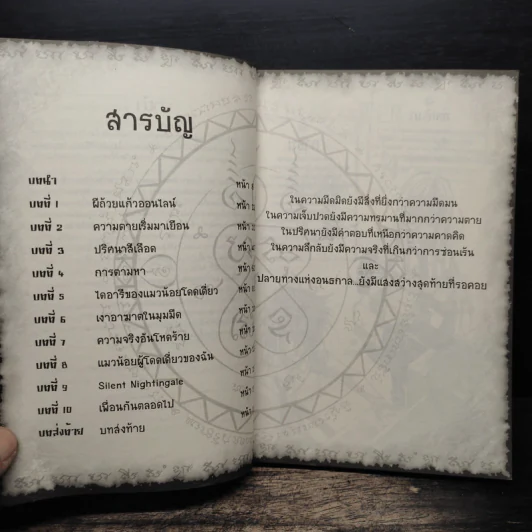 สารบัญ
บทนำ หน้า
บทที่ 1 ผีถ้วยแก้วออนไลน์ หน้า
บทที่ 2 ความตายเริ่มมาเยือน หน้า
บทที่ 3 ปริศนาสีเลือด หน้า
บทที่ 4 การตามหา หน้า
บทที่ 5 ไดอารีของแมวน้อยโดดเดี่ยว หน้า
บทที่ 6 เงาอาฆาตในมุมมืด หน้า
บทที่ 7 ความจริงอันโหดร้าย หน้า
บทที่ 8 แมวน้อยผู้โดดเดี่ยวของฉัน หน้า
บทที่ 9 Silent Nightingale หน้า
บทที่ 10 เพื่อนกันตลอดไป หน้า
บทส่งท้าย บทส่งท้าย หน้า
ในความมืดมิดยังมีสิ่งที่ยิ่งกว่าความมืดมน
ในความเจ็บปวดยังมีความทรมานที่มากกว่าความตาย
ในปริศนายังมีคำตอบที่เหนือกว่าความคาดคิด
ในความลึกลับยังมีความจริงที่เกินกว่าการซ่อนเร้น
และ
ปลายทางแห่งอนธกาล...ยังมีแสงสว่างสุดท้ายที่รอคอย